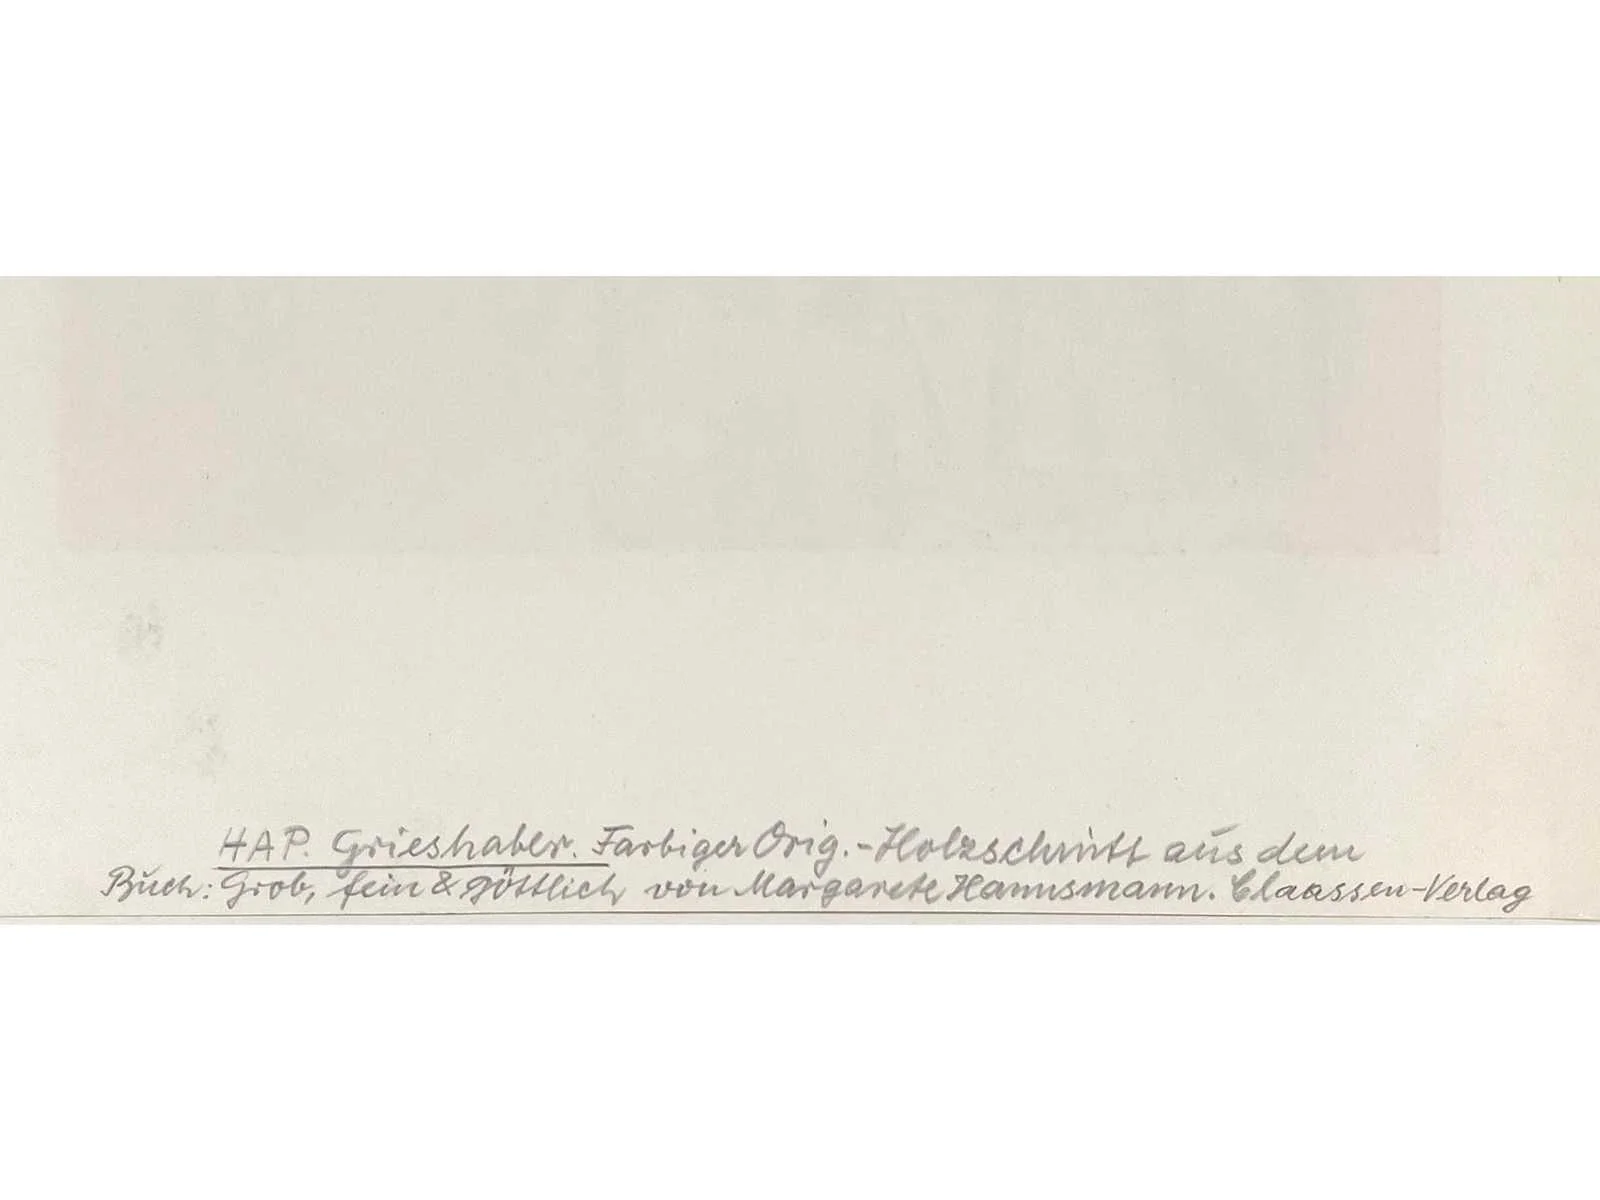 HAP. Grieshaber. Farbiger Orig.-Holzschnitt aus dem
Buch: Grob, fein & göttlich von Margarete Hannsmann. Claassen-Verlag